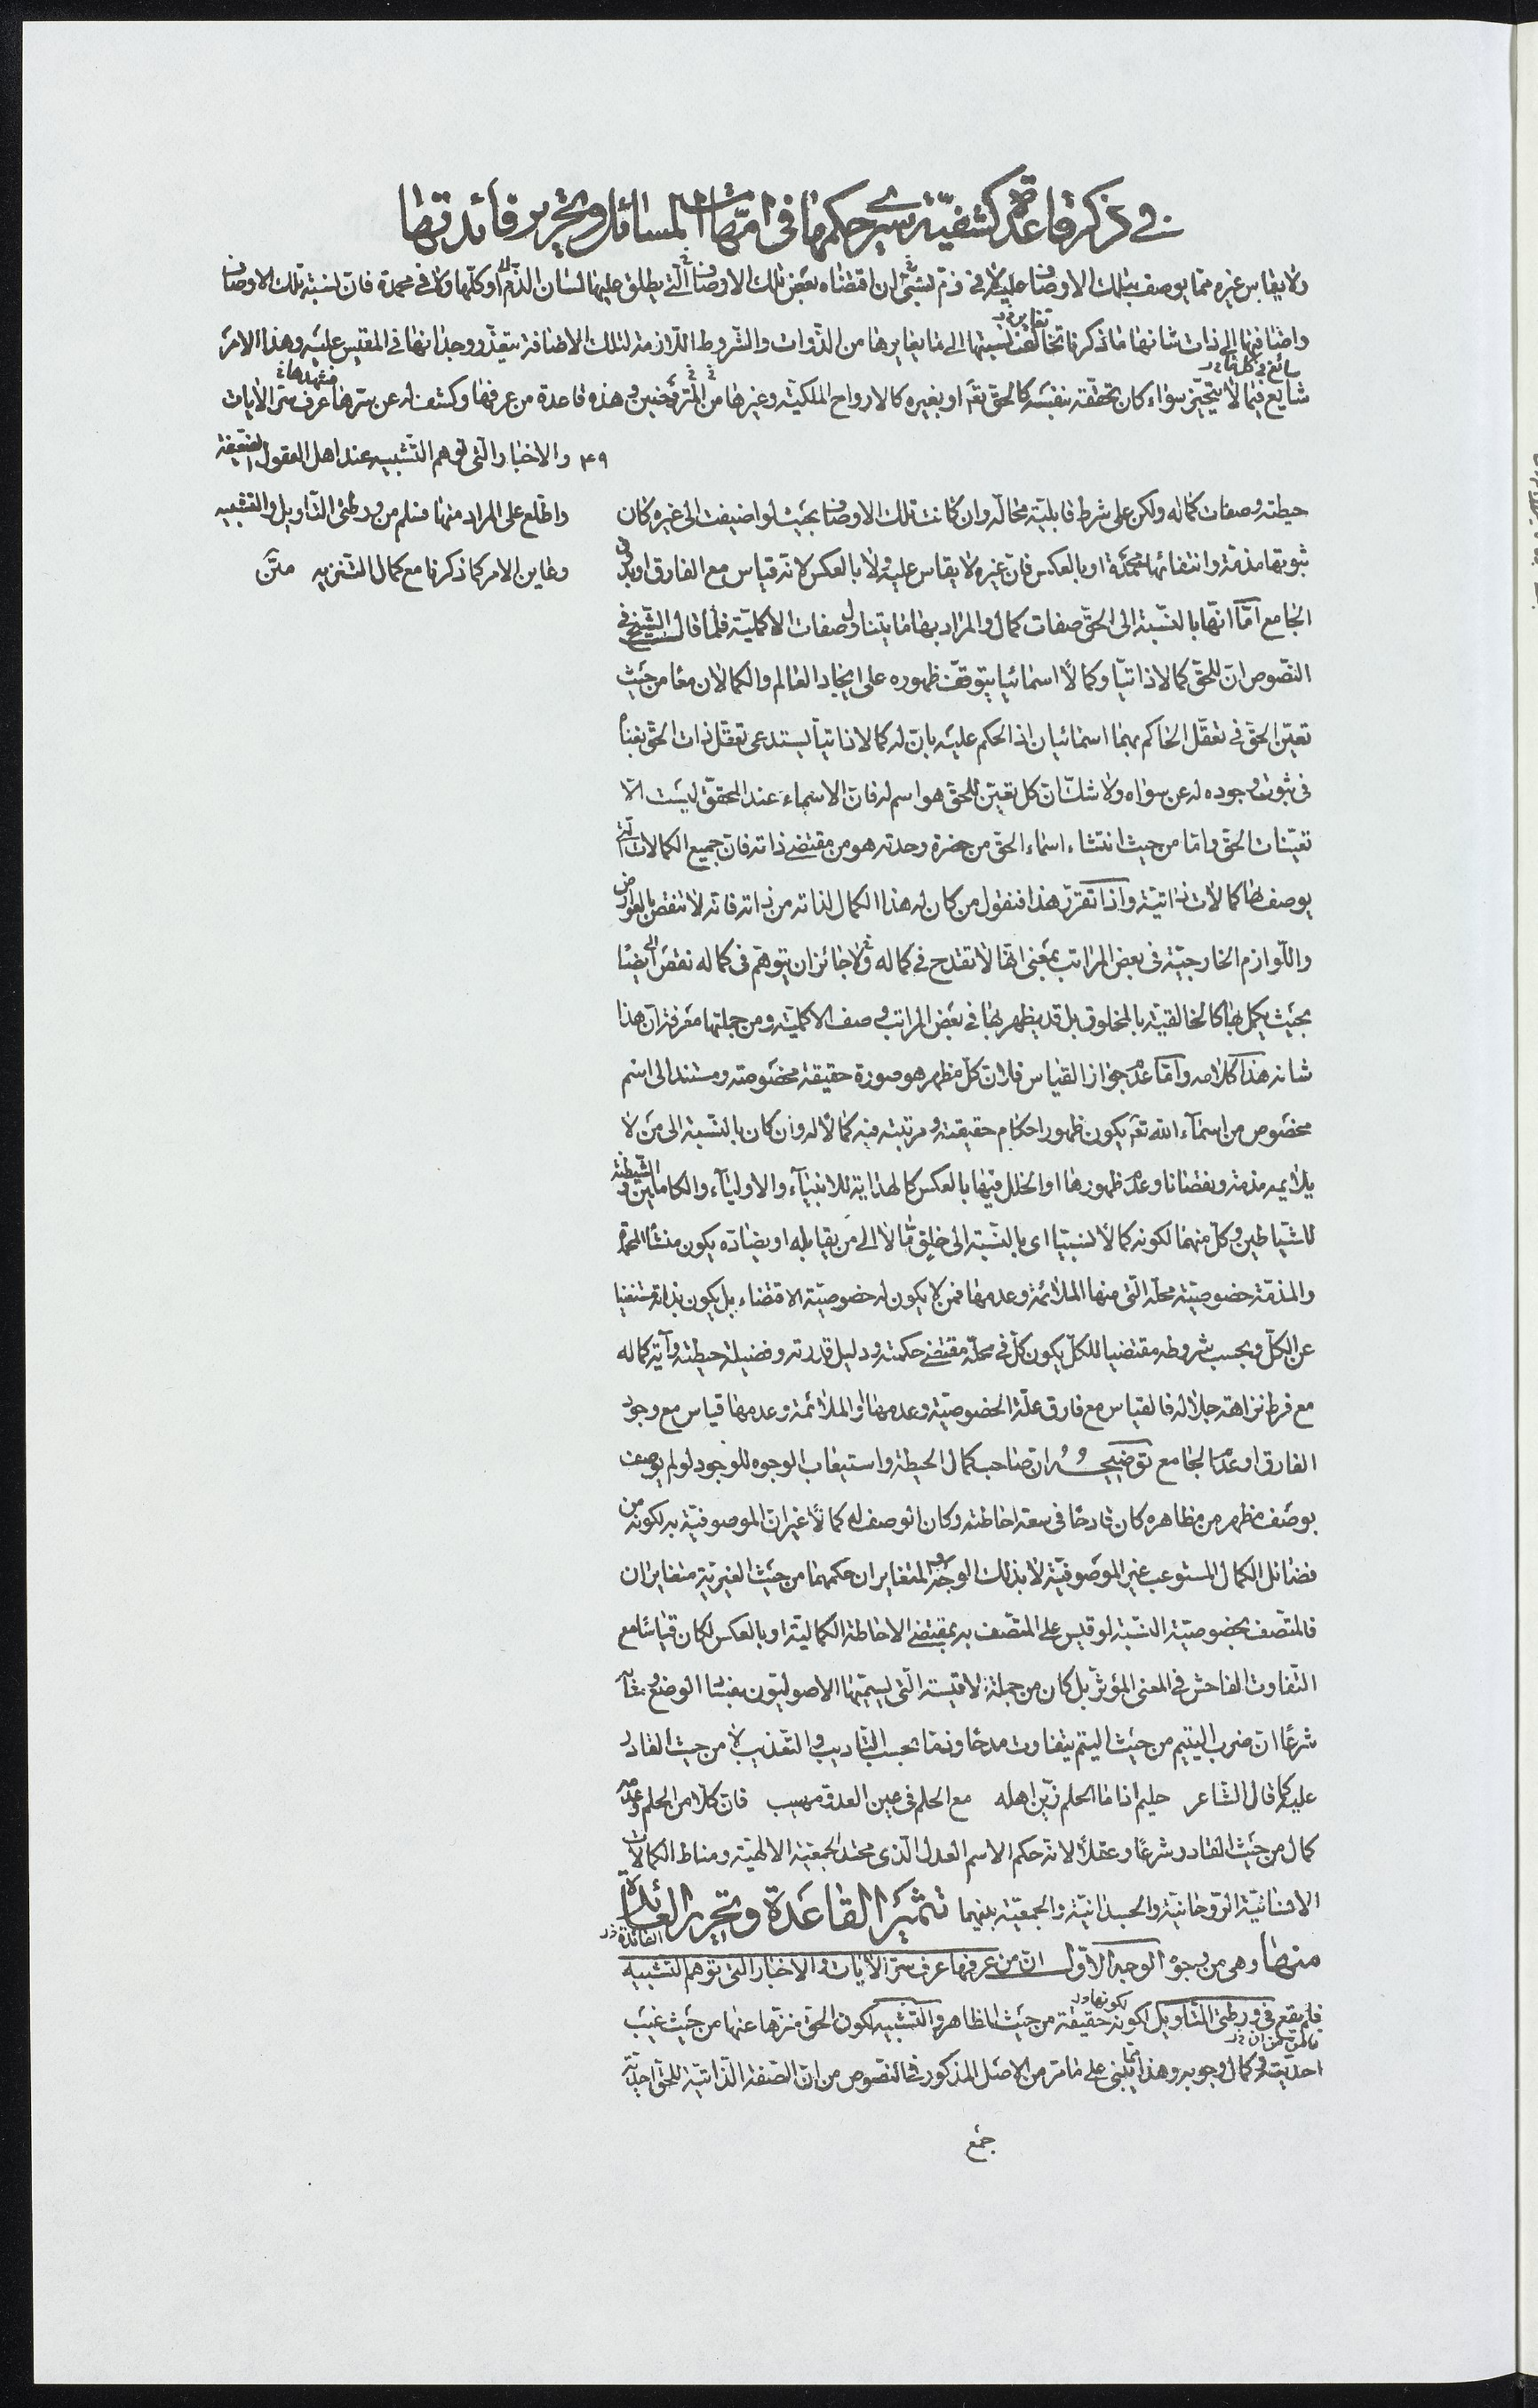 في ذكر قاعدة كشفيّة يسري حكمها في امّهات المسائل وتحرير فائدتها
ولا يقاس غيره ممّا يوصف بتلك الاوصاف عليه لا في ذمّ لشيء ان اقتضاه بعض تلك الاوصاف الّتي يطلق عليها لسان الذّم او كلّها ولا في محمدة فانّ نسبة تلك الاوصاف
واضافتها الى ذات شانها ما ذكرنا تخالف نسبتها الى ما يغايرها من الذّوات والشّروط اللّازمة لتلك الاضافة يتعذّر وجدانها في المقيس عليه وهذا الامر
شايع فيما لا يتحيّز سواء كان تحقّقه بنفسه كالحقّ تع او بغيره كالارواح الملكيّة وغيرها من المتروّحنين وهذه قاعدة من عرفها وكشف له عن سرّها عرف سرّ الايات
٤٩ والاخبار الّتي توهم التّشبيه عند اهل العقول الضّعيفة
واطّلع على المراد منها فسلم من ورطتي التّاويل والتّشبيه
وعاين الامر كما ذكرنا مع كمال التّنزيه متن
حيطته وصفات كماله ولكن على شرط قابليّة محالّه وان كانت تلك الاوصاف بحيث لو اضيفت الى غيره كان
ثبوتها مذمّة وانتفائها محمدة او بالعكس فانّ غيره لا يقاس عليه ولا بالعكس لانّه قياس مع الفارق او بدون
الجامع امّا انّها بالنّسبة الى الحقّ صفات كمال والمراد بها ما يتناول صفات الاكمليّة فلما قال الشّيخ في
النّصوص انّ للحقّ كمالا ذاتيّا وكمالًا اسمائيا يتوقّف ظهوره على ايجاد العالم والكمالان معا من حيث
تعيّن الحقّ في تعقّل الحاكم بهما اسمائيان اذ الحكم عليه بانّ له كمالا ذاتيا يستدعى تعقّل ذات الحقّ بغناه
في ثبوت وجوده له عن سواه ولا شكّ انّ كل تعيّن للحقّ هو اسم له فانّ الاسماء عند المحقّق ليست الّا
تعيّنات الحقّ وامّا من حيث انتشاء اسماء الحقّ من حضرة وحدته هو من مقتضى ذاته فانّ جميع الكمالات الّتي
يوصف بها كمالات ذاتيّة واذا تقرّر هذا فنقول من كان له هذا الكمال لذاته من ذاته فانّه لا تنقص بالعوارض
واللّوازم الخارجيّة في بعض المراتب بمعنى انّها لا تقدح في كماله ولا جائز ان يتوهّم في كماله نقص ايضا
بحيث يكمل بها كالخالقيّة بالمخلوق بل قد يظهر بها في بعض المراتب وصف الاكمليّة ومن جملتها معرفة انّ هذا
شانه هذا كلامه وامّا عدم جواز القياس فلانّ كلّ مظهر هو صورة حقيقة مخصوصة ومستند الى اسم
مخصوص من اسماء الله تع يكون ظهور احكام حقيقته ومرتبته فيه كمالا له وان كان بالنّسبة الى من لا
يلايمه مذمّة ونقصانا وعدم ظهورها او الخلل فيها بالعكس كالهداية للانبياء والاولياء والكاملين والشّيطنة
للشّياطين وكلّ منهما لكونه كمالًا نسبيّا اى بالنّسبة الى خليق ما لا الى من يقابله او يضادّه يكون منشأ المحمدة
والمذمّة خصوصيّة محلّه الّتي منها الملائمة وعدمها فمن لا يكون له خصوصيّة الاقتضاء بل يكون بذاته مستغنيا
عن الكلّ وبحسب شروطه مقتضيا للكلّ يكون كلّ في محلّه مقتضى حكمته ودليل قدرته وفضيلة حيطته وآية كماله
مع فرط نزاهة جلاله فالقياس مع فارق علّة الخصوصيّة وعدمها او الملائمة وعدمها قياس مع وجود
الفارق او عدم الجامع توضيحه انّ صاحب كمال الحيطة واستيعاب الوجوه للوجود لو لم يوصف
بوصف مظهر من مظاهره كان قادحا في سعة احاطته وكان الوصف له كمالًا غير انّ الموصوفيّة به لكونه من
فضائل الكمال المستوعب غير الموصوفيّة لا بذلك الوجه والمتغايران حكمهما من حيث الغيريّة متغايران
فالمتّصف بخصوصيّة النّسبة لو قيس على المتّصف به بمقتضى الاحاطة الكماليّة او بالعكس لكان قياسا مع
التّفاوت الفاحش في المعنى المؤثّر بل كان من جملة الاقيسة الّتي يسمّيها الاصوليّون بفساد الوضع
شرعًا انّ ضرب اليتيم من حيث اليتم يتفاوت مدحا وذمّا بحسب التّاديب والتّعذيب لا من حيث القادر
عليه كما قال الشّاعر حليم اذا ما الحلم زيّن اهله مع الحلم في عين العدوّ مهيب فانّ كلّا من الحلم وعدمه
كمال من حيث القادر شرعًا وعقلًا لانّه حكم الاسم العدل الّذى محتد الجمعيّة الالهيّة ومناط الكمالات
الانسانيّة الرّوحانيّة والجسدانيّة والجمعيّة بينهما تثمير القاعدة وتحرير العائدة
منها وهى من وجوه الوجه الاوّل انّ من عرفها عرف سرّ الايات والاخبار الّتي توهم التّشبيه
فلم يقع في ورطتي التّاويل لكونه حقيقة من حيث المظاهر والتّشبيه لكون الحقّ منزّها عنها من حيث غيب
احديّته وكمال وجوبه وهذا يبتني على ما مرّ من الاصل المذكور في النّصوص من انّ الصّفة الذّاتيّة للحقّ احديّة
جمع